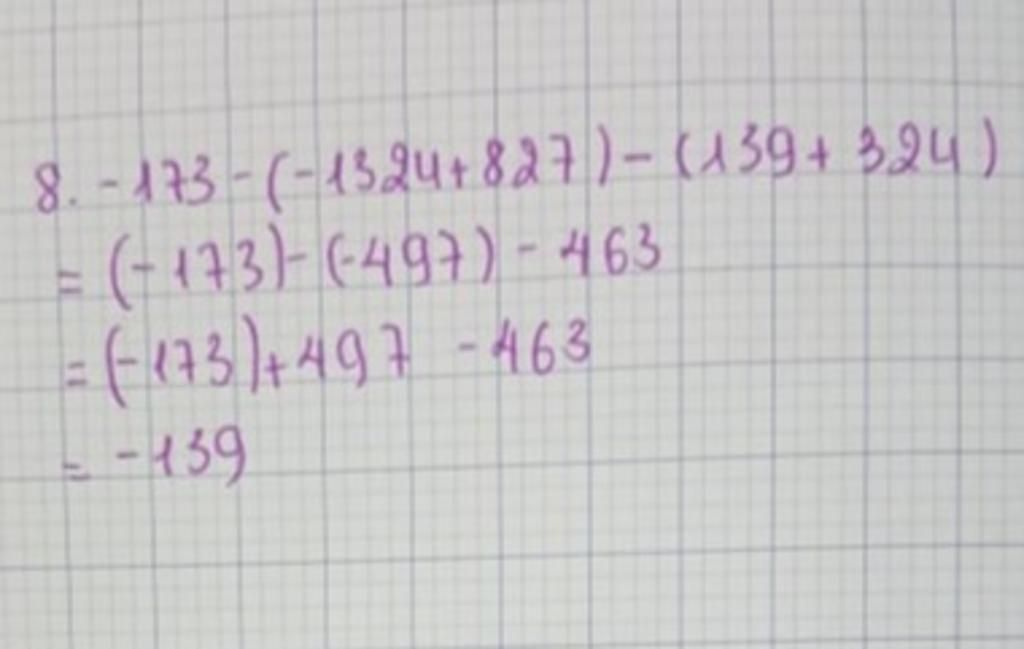 8. -173-(-1324+827)-(139+324)
= (-173)-(-497)-463
= (-173)+497 -463
= -139